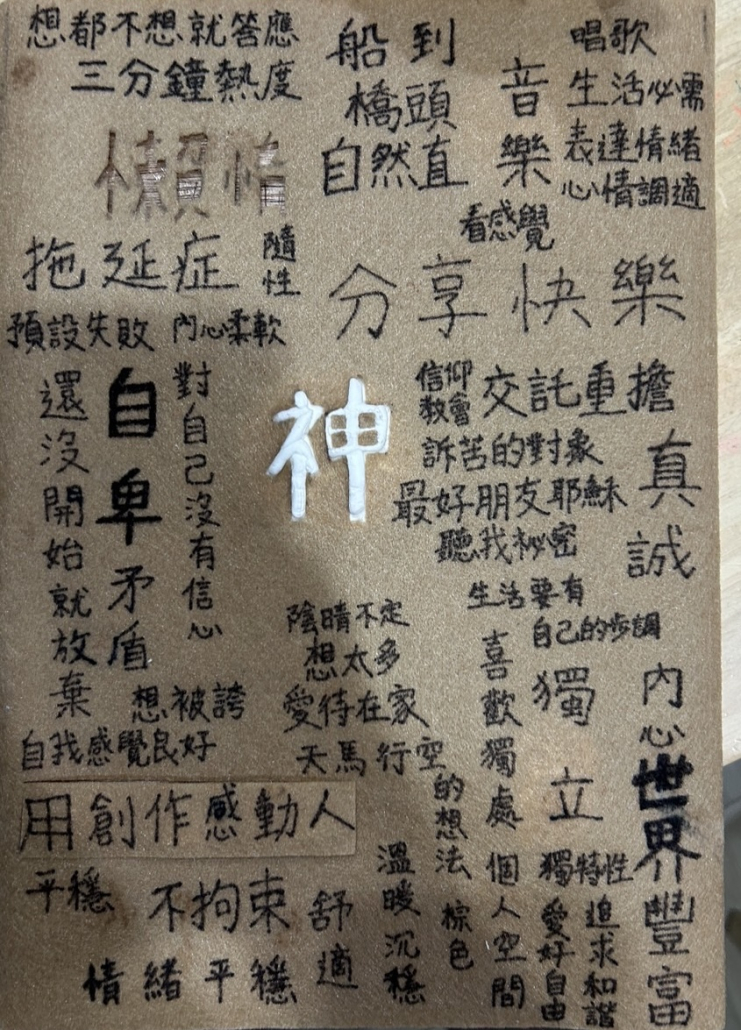 想都不想就答應
三分鐘熱度
懶惰
拖延症
隨性
預設失敗
內心柔軟
船到
橋頭
自然直
音樂
唱歌
生活必需
表達情緒
心情調適
看感覺
分享快樂
還沒開始就放棄
自卑矛盾
對自己沒有信心
神
信仰
教會
交託重擔
訴苦的對象
最好朋友耶穌
聽我祕密
真誠
生活要有
自己的步調
陰晴不定
想太多
愛待在家
天馬行空
的想法
喜歡獨處
個人空間
獨立
獨特性
內心世界豐富
想被誇
自我感覺良好
用創作感動人
平穩
不拘束
舒適
情緒平穩
溫暖沉穩
棕色
愛好自由
追求和諧